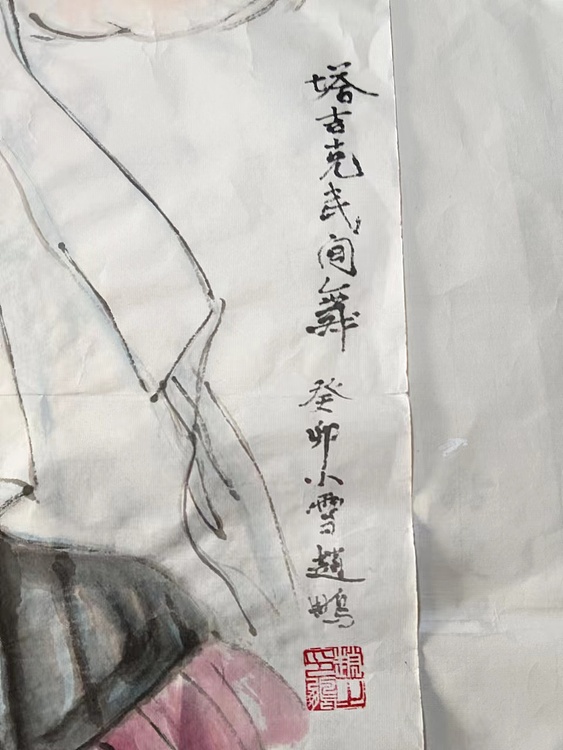 塔吉克民间舞 癸卯小雪趙鵬